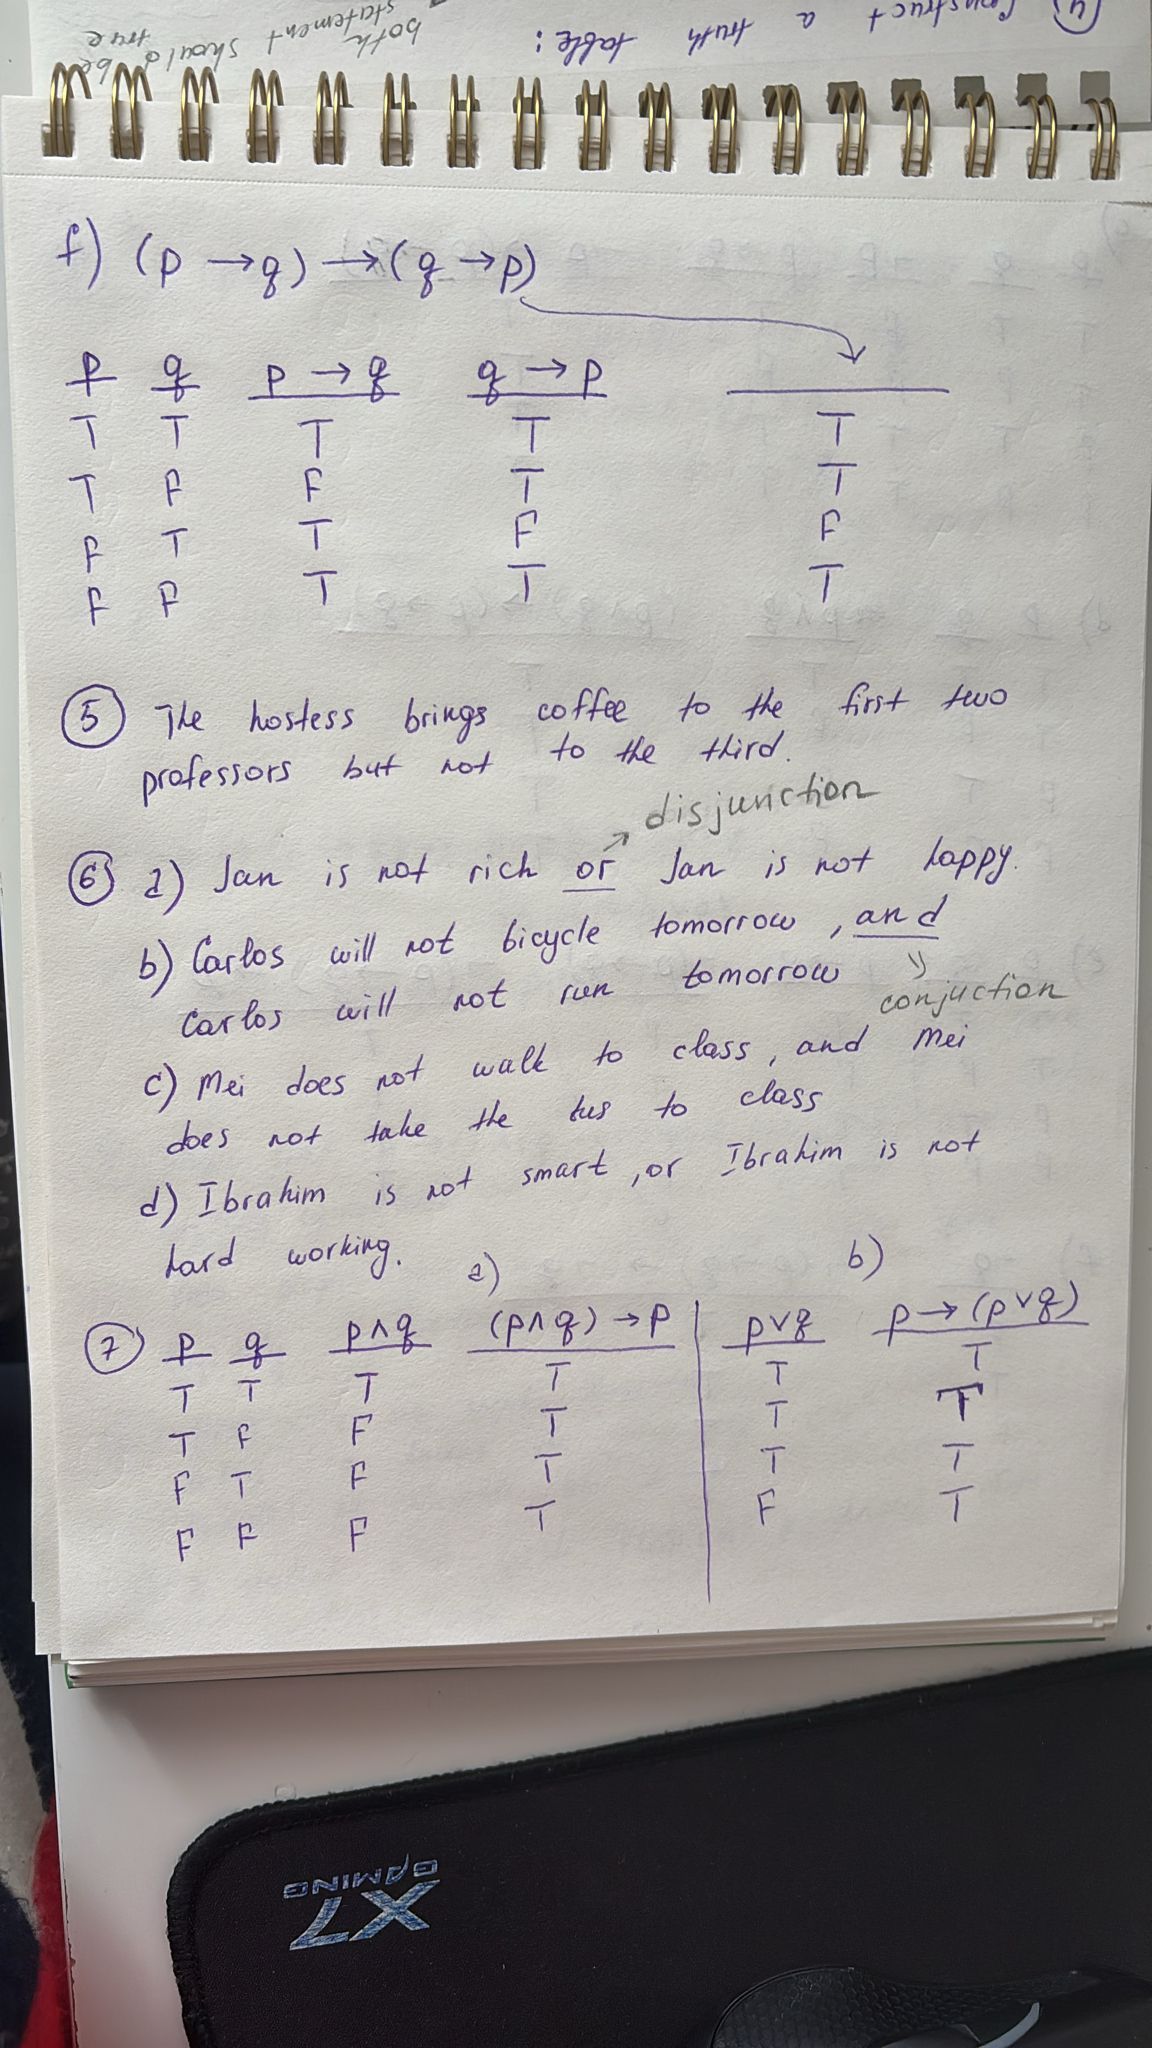 4) Construct a truth table:
both
statement should be
true
f) (p → q) → (q → p)
p q p → q q → p
T T T T T
T F F T T
F T T F F
F F T T T
5 The hostess brings coffee to the first two
professors but not to the third.
disjunction
6 a) Jan is not rich or Jan is not happy.
b) Carlos will not bicycle tomorrow, and
Carlos will not run tomorrow
conjuction
c) Mei does not walk to class, and Mei
does not take the bus to class
d) Ibrahim is not smart, or Ibrahim is not
hard working.
a) b)
7 p q p∧q (p∧q) → p p∨q p → (p∨q)
T T T T T T
T F F T T T
F T F T T T
F F F T F T
X7
GAMING